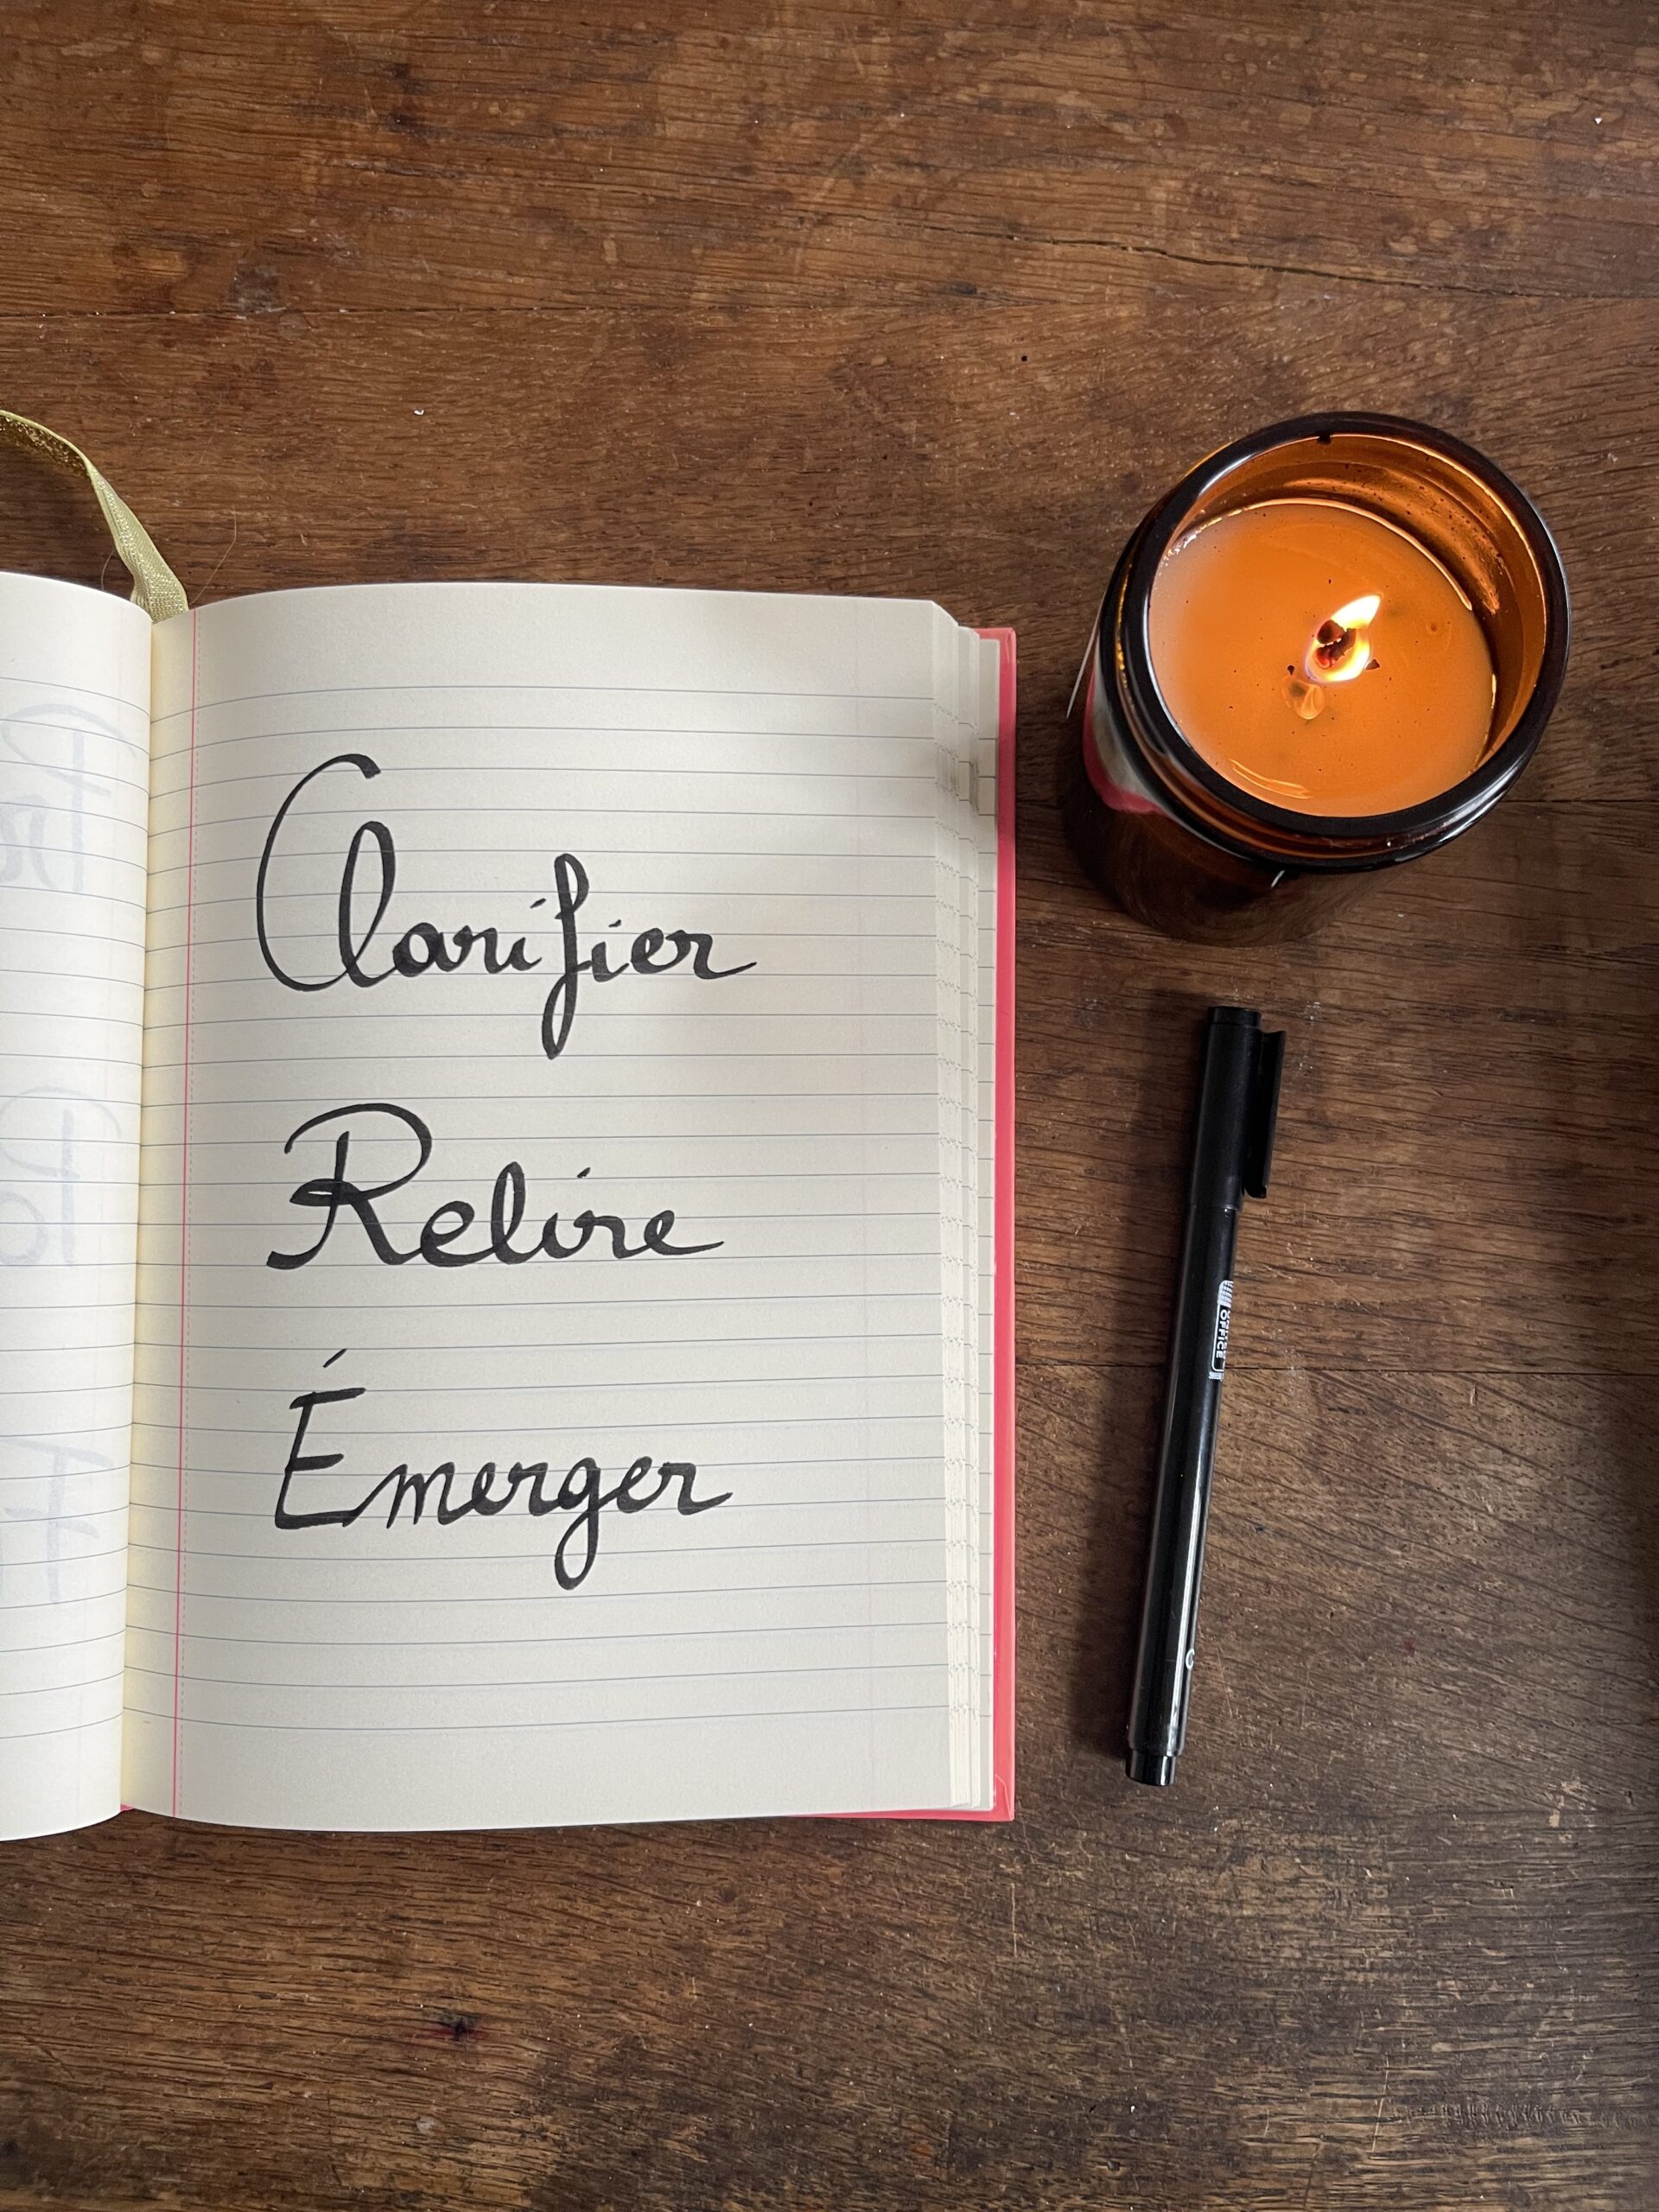 Clarifier
Relire
Émerger
OFFICE